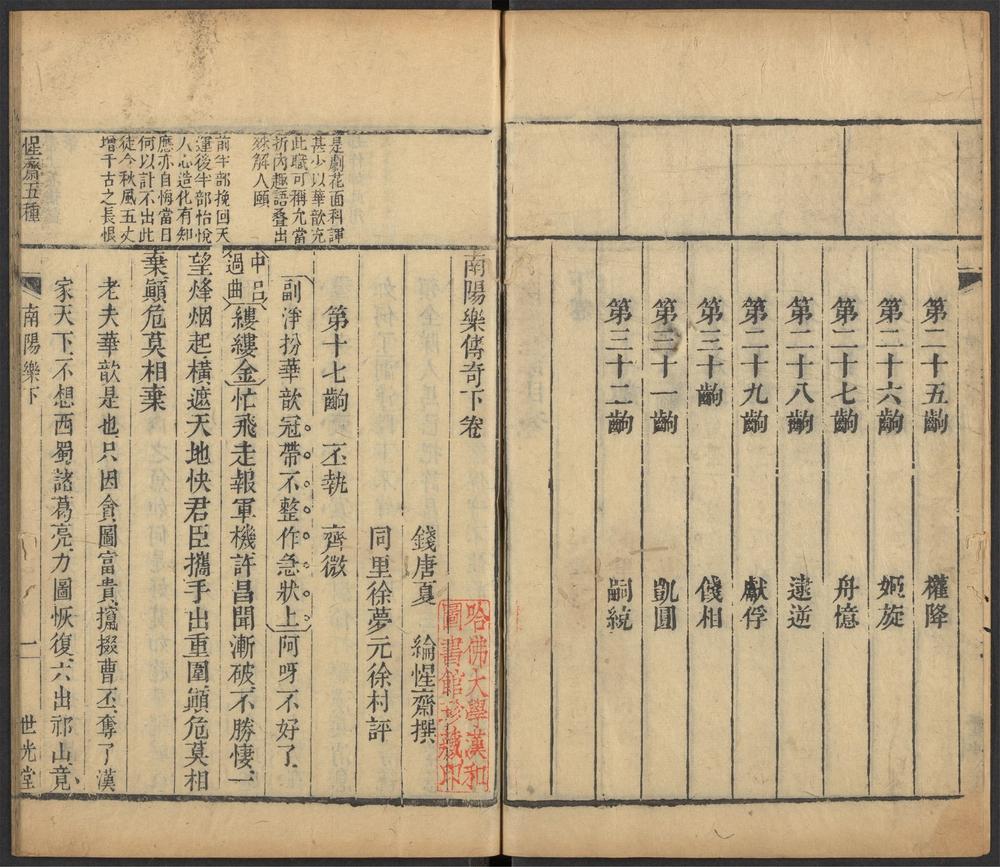 第二十五齣 權降
第二十六齣 姬旋
第二十七齣 舟憶
第二十八齣 逮逆
第二十九齣 獻俘
第三十齣 餞相
第三十一齣 凱圓
第三十二齣 嗣統
是劇花面科諢
甚少以華歆充
此賦可稱允當
折內趣語叠出
殊解人頤
前半部挽回天
運後半部怡悅
人心造化有知
應亦自悔當日
何以計不出此
徒令秋風五丈
增千古之長恨
南陽樂傳奇下卷
錢唐夏 綸惺齋撰
同里徐夢元徐村評
哈佛大學漢和
圖書館珍藏印
第十七齣 丕執 齊微
副淨扮華歆冠帶不整作急狀上阿呀不好了
中呂
過曲
縷縷金忙飛走報軍機許昌聞漸破不勝悽一
望烽烟起橫遮天地快君臣攜手出重圍顚危莫相
棄顚危莫相棄
老夫華歆是也只因貪圖富貴攛掇曹丕奪了漢
家天下不想西蜀諸葛亮力圖恢復六出祁山竟
惺齋五種
南陽樂下
一
世光堂